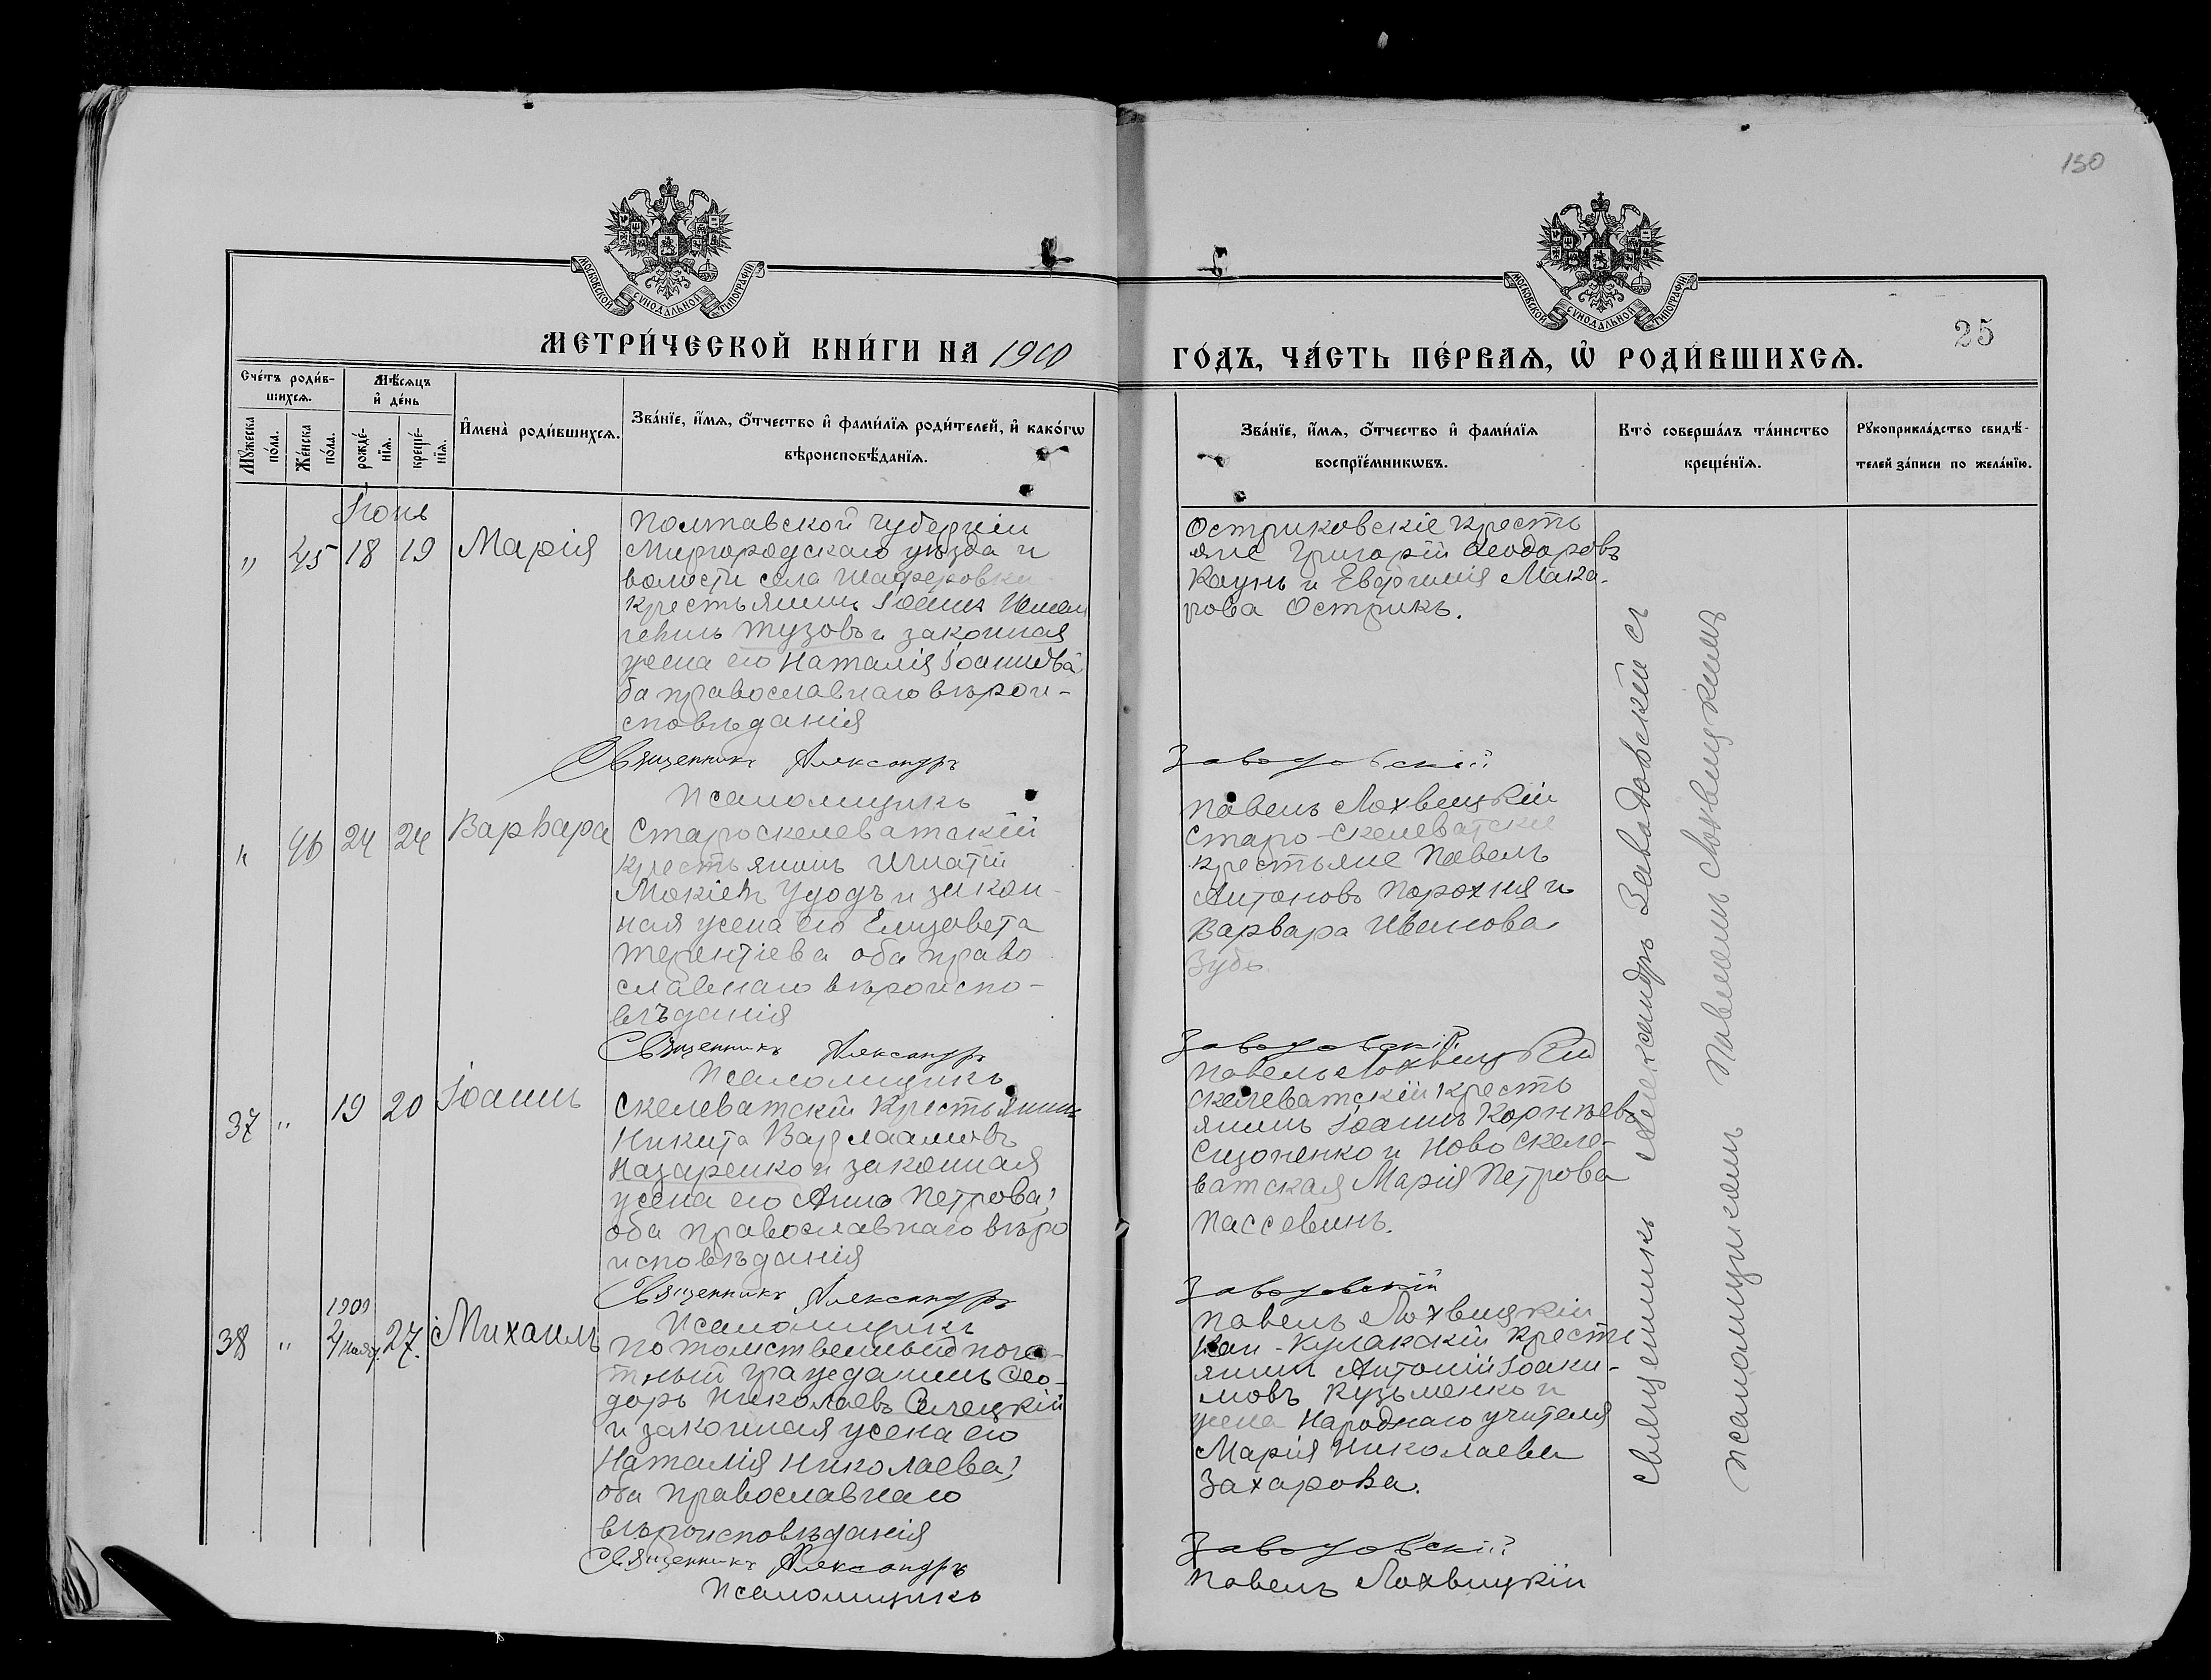 150
МОСКОВСКОЙ СУНОДАЛЬНОЙ ТИПОГРАФІИ
МОСКОВСКОЙ СУНОДАЛЬНОЙ ТИПОГРАФІИ
25
МЕТРИ́ЧЕСКОЙ КНИ́ГИ НА 1910
ГО́ДЪ, ЧА́СТЬ ПЕ́РВАѦ, Ѡ҆ РОДИ́ВШИХСѦ.
Сче́тъ роди́в-
шихсѧ.
Мѣ́сѧцъ
и҆ де́нь
Мꙋ́жеска
по́ла.
Же́нска
по́ла.
рожде́-
нїѧ.
креще́-
нїѧ.
И҆мена̀ роди́вшихсѧ.
Зва́нїе, и҆́мѧ, ѻ҆́тчество и҆ фами́лїѧ роди́телей, и҆ како́гѡ
вѣроисповѣ́данїѧ.
Зва́нїе, и҆́мѧ, ѻ҆́тчество и҆ фами́лїѧ
воспрїе́мникѡвъ.
Кто̀ соверша́лъ та́инство
креще́нїѧ.
Рꙋкоприкла́дство свидѣ́-
телей за́писи по жела́нїю.
Іюнь
" 45 18 19 Марія
Полтавской губерніи
Миргородскаго уѣзда и
волости села Шафоровки
крестьянинъ Іоаннъ
Тузовъ и законная
жена его Наталія Іоаннова
ба православнаго вѣрои-
сповѣданія
Священникъ Александръ
Псаломщикъ
Остриковскіе кресть
яне Григорій Ѳеодоровъ
Каунъ и Евфимія Мака-
рова Острикъ.
Заводовскій
Павелъ Лохвицкій
" 46 24 24 Варвара
Староскелеватскій
крестьянинъ Игнатій
Мокіевъ Удодъ и закон-
ная жена его Елизавета
Терентіева оба право
славнаго вѣроиспо-
вѣданія
Священникъ Александръ
Псаломщикъ
Старо-Скелеватскіе
крестьяне Павелъ
Антоновъ Порохня и
Варвара Иванова
Зубъ
Заводовскій
Павелъ Лохвицкій
37 " 19 20 Іоаннъ
Скелеватскій крестьянинъ
Никита Варлаамовъ
Назаренко и законная
жена его Анна Петрова,
оба православнаго вѣро
исповѣданія
Священникъ Александръ
Псаломщикъ
Скелеватскій кресть
янинъ Іоаннъ Корнѣевъ
Сизоненко и Ново Скеле-
ватская Марія Петрова
Пассевинъ.
Заводовскій
Павелъ Лохвицкій
1909
38 " 27. Михаилъ
Потомственный поче-
тный гражданинъ Ѳео-
доръ Николаевъ Сѣлецкій
и законная жена его
Наталія Николаева,
оба православнаго
вѣроисповѣданія
Священникъ Александръ
Псаломщикъ
Кан-Кулакскій кресть
янинъ Антоній Іоаки-
мовъ Кузьменко и
жена Народнаго учителя
Марія Николаева
Захарова.
Заводовскій
Павелъ Лохвицкій
священникъ Александръ Заводовскій съ
псаломщикомъ Павломъ Лохвицкимъ